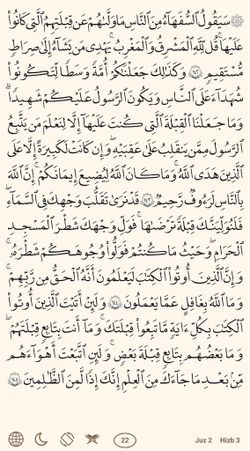 ۞ سَيَقُولُ ٱلسُّفَهَآءُ مِنَ ٱلنَّاسِ مَا وَلَّىٰهُمْ عَن قِبْلَتِهِمُ ٱلَّتِى كَانُوا۟
عَلَيْهَا ۚ قُل لِّلَّهِ ٱلْمَشْرِقُ وَٱلْمَغْرِبُ ۚ يَهْدِى مَن يَشَآءُ إِلَىٰ صِرَٰطٍ
مُّسْتَقِيمٍ ١٤٢ وَكَذَٰلِكَ جَعَلْنَٰكُمْ أُمَّةً وَسَطًا لِّتَكُونُوا۟
شُهَدَآءَ عَلَى ٱلنَّاسِ وَيَكُونَ ٱلرَّسُولُ عَلَيْكُمْ شَهِيدًا ۗ
وَمَا جَعَلْنَا ٱلْقِبْلَةَ ٱلَّتِى كُنتَ عَلَيْهَآ إِلَّا لِنَعْلَمَ مَن يَتَّبِعُ
ٱلرَّسُولَ مِمَّن يَنقَلِبُ عَلَىٰ عَقِبَيْهِ ۚ وَإِن كَانَتْ لَكَبِيرَةً إِلَّا عَلَى
ٱلَّذِينَ هَدَى ٱللَّهُ ۗ وَمَا كَانَ ٱللَّهُ لِيُضِيعَ إِيمَٰنَكُمْ ۚ إِنَّ ٱللَّهَ
بِٱلنَّاسِ لَرَءُوفٌ رَّحِيمٌ ١٤٣ قَدْ نَرَىٰ تَقَلُّبَ وَجْهِكَ فِى ٱلسَّمَآءِ ۖ
فَلَنُوَلِّيَنَّكَ قِبْلَةً تَرْضَىٰهَا ۚ فَوَلِّ وَجْهَكَ شَطْرَ ٱلْمَسْجِدِ
ٱلْحَرَامِ ۚ وَحَيْثُ مَا كُنتُمْ فَوَلُّوا۟ وُجُوهَكُمْ شَطْرَهُۥ ۗ
وَإِنَّ ٱلَّذِينَ أُوتُوا۟ ٱلْكِتَٰبَ لَيَعْلَمُونَ أَنَّهُ ٱلْحَقُّ مِن رَّبِّهِمْ ۗ
وَمَا ٱللَّهُ بِغَٰفِلٍ عَمَّا يَعْمَلُونَ ١٤٤ وَلَئِنْ أَتَيْتَ ٱلَّذِينَ أُوتُوا۟
ٱلْكِتَٰبَ بِكُلِّ ءَايَةٍ مَّا تَبِعُوا۟ قِبْلَتَكَ ۚ وَمَآ أَنتَ بِتَابِعٍ قِبْلَتَهُمْ ۚ
وَمَا بَعْضُهُم بِتَابِعٍ قِبْلَةَ بَعْضٍ ۚ وَلَئِنِ ٱتَّبَعْتَ أَهْوَآءَهُم
مِّنۢ بَعْدِ مَا جَآءَكَ مِنَ ٱلْعِلْمِ ۙ إِنَّكَ إِذًا لَّمِنَ ٱلظَّٰلِمِينَ ١٤٥
22 Juz 2 Hizb 3